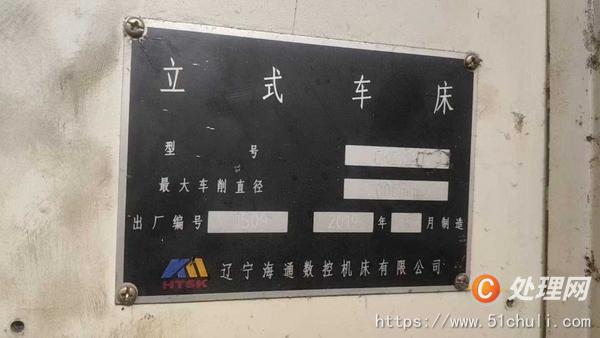 立式车床
型号
最大车削直径
出厂编号 年 月制造
HTSK 辽宁海通数控机床有限公司
C 处理网
https://www.51chuli.com